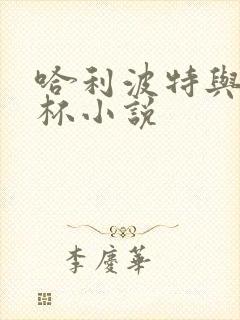 哈利波特與
杯小說
李慶華